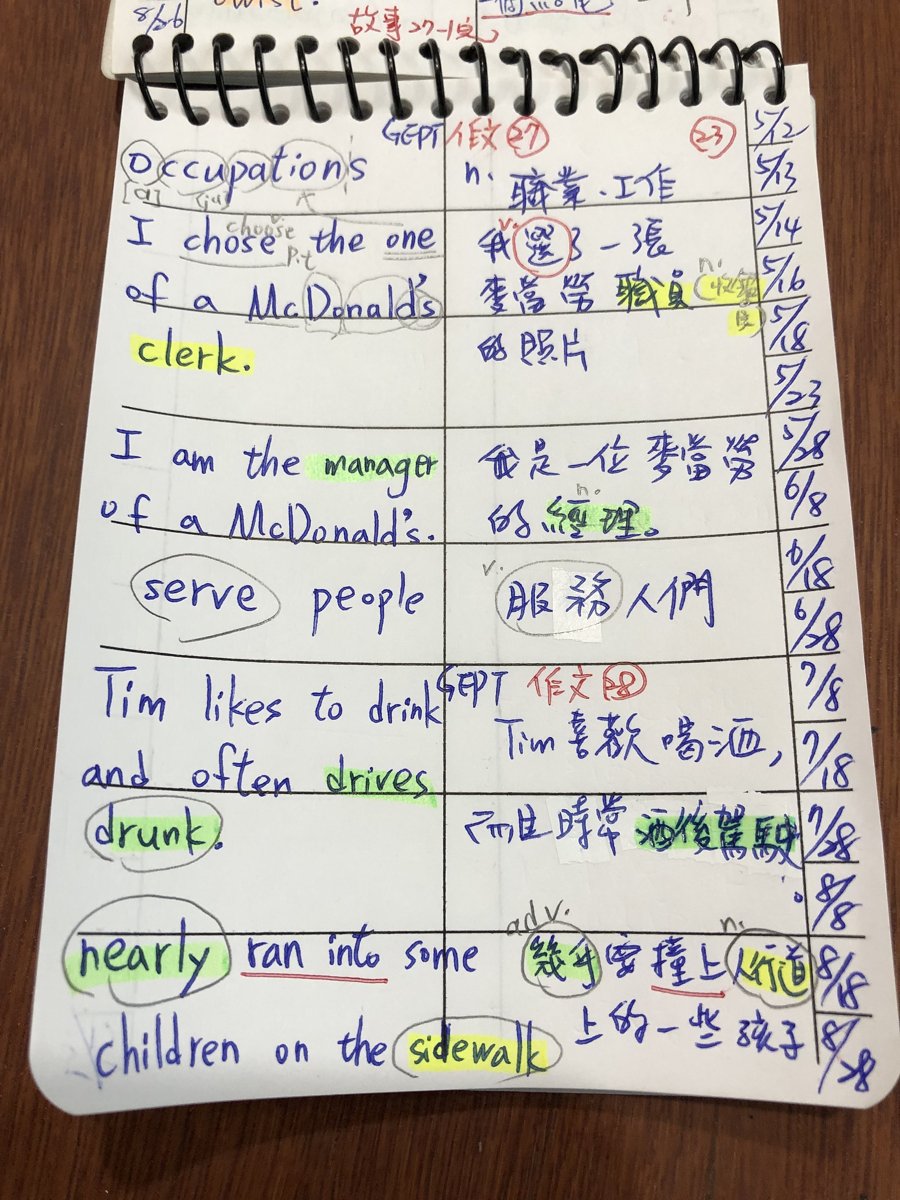 8/26
故事27-1
GEPT 作文 27
23
Occupations
n. 職業.工作
[a]
I chose the one
choose
p.t
v.
我選了一張
of a McDonald's
n.
麥當勞職員(收銀員)
clerk.
的照片
I am the manager
我是一位麥當勞
of a McDonald's.
n.
的經理。
serve people
v. 服務人們
GEPT 作文 28
Tim likes to drink
Tim喜歡喝酒,
and often drives
而且時常酒後駕駛。
drunk.
adv.
n.
nearly ran into some
幾乎要撞上人行道
children on the sidewalk
上的一些孩子
5/12
5/13
5/14
5/16
5/18
5/23
5/28
6/8
6/18
6/28
7/8
7/18
7/28
8/8
8/18
8/28